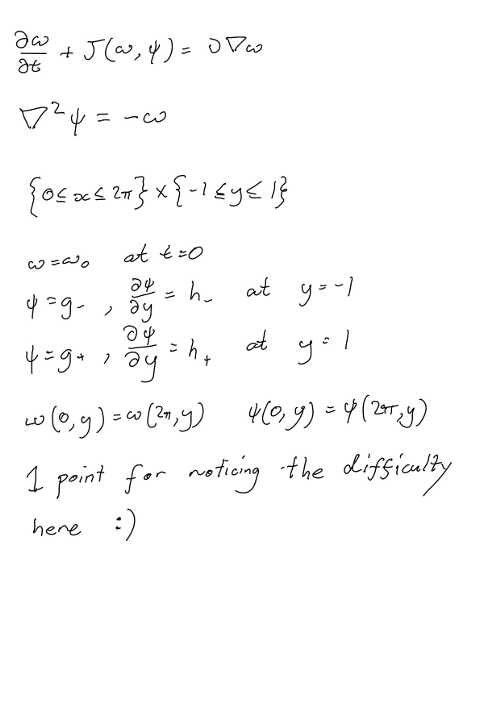 ∂ω/∂t + J(ω, ψ) = ν∇ω
∇²ψ = -ω
{0 ≤ x ≤ 2π} × {-1 ≤ y ≤ 1}
ω = ω₀ at t = 0
ψ = g₋ , ∂ψ/∂y = h₋ at y = -1
ψ = g₊ , ∂ψ/∂y = h₊ at y = 1
ω(0, y) = ω(2π, y) ψ(0, y) = ψ(2π, y)
1 point for noticing the difficulty
here :)